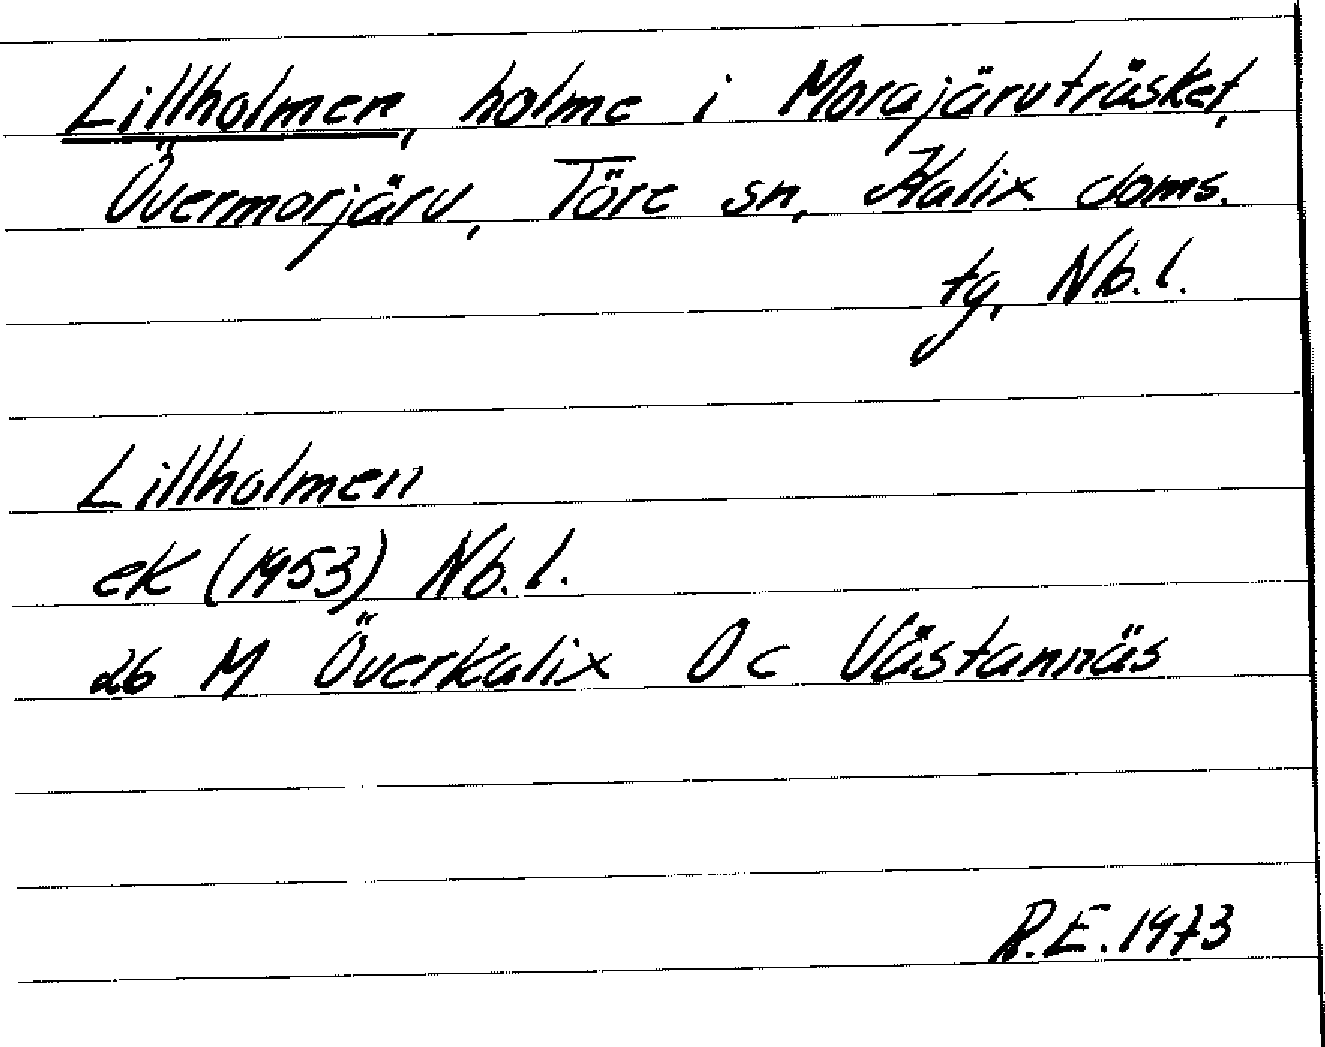 Lillholmen, holme i Morajärvträsket,
Övermorjärv, Töre sn, Kalix doms.
tg, Nb.l.
Lillholmen
ek (1953) Nb.l.
26 M Överkalix 0c Västannäs
R.E. 1973